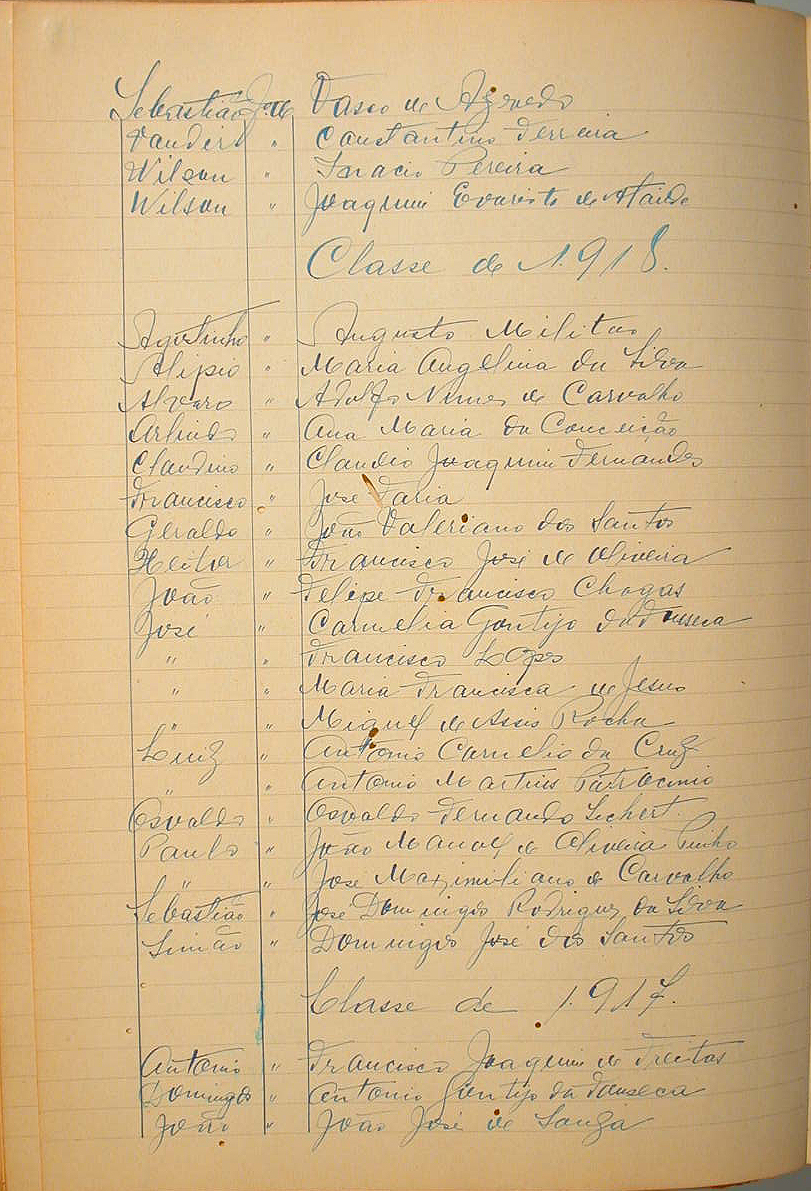 Sebastião f. de Vasco de Azevedo
Vandir " Constantino Ferreira
Wilson " Inacio Pereira
Wilson " Joaquim Evaristo de Ataide
Classe de 1.918.
Agostinho " Augusto Militão
Alipio " Maria Angelina da Silva
Alvaro " Adolfo Nunes de Carvalho
Arlindo " Ana Maria da Conceição
Claudino " Claudio Joaquim Fernandes
Francisco " José Faria
Geraldo " João Valeriano dos Santos
Heitor " Francisco José de Oliveira
João " Felipe Francisco Chagas
José " Carmelia Gontijo da Fonseca
" " Francisco Lopes
" " Maria Francisca de Jesus
" " Miguel de Assis Rocha
Luiz " Antonio Carnelio da Cruz
" " Antonio Martins Patrocinio
Osvaldo " Osvaldo Fernando
Paulo " João Manoel de Oliveira Pinho
" " José Maximiliano de Carvalho
Sebastião " José Domingos Rodrigues da Silva
Simão " Domingos José dos Santos
Classe de 1.917.
Antonio " Francisco Joaquim de Freitas
Domingos " Antonio Gontijo da Fonseca
João " João José de Souza